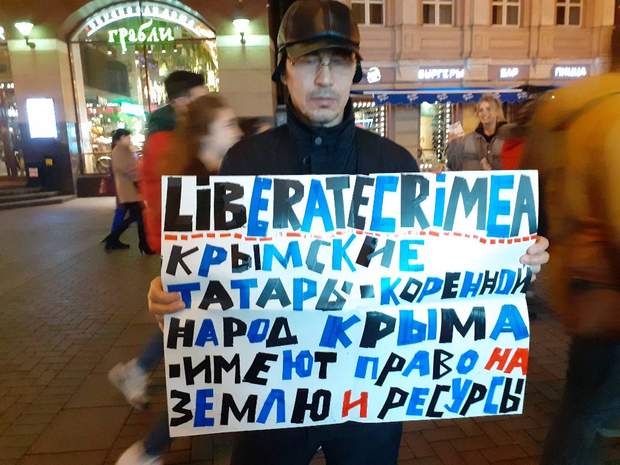 грабли
БУРГЕРЫ БАР ПИЦЦА
LIBERATECRIMEA
КРЫМСКИЕ
ТАТАРЫ-КОРЕННОЙ
НАРОД КРЫМА
-ИМЕЮТ ПРАВО НА
ЗЕМЛЮ И РЕСУРСЫ